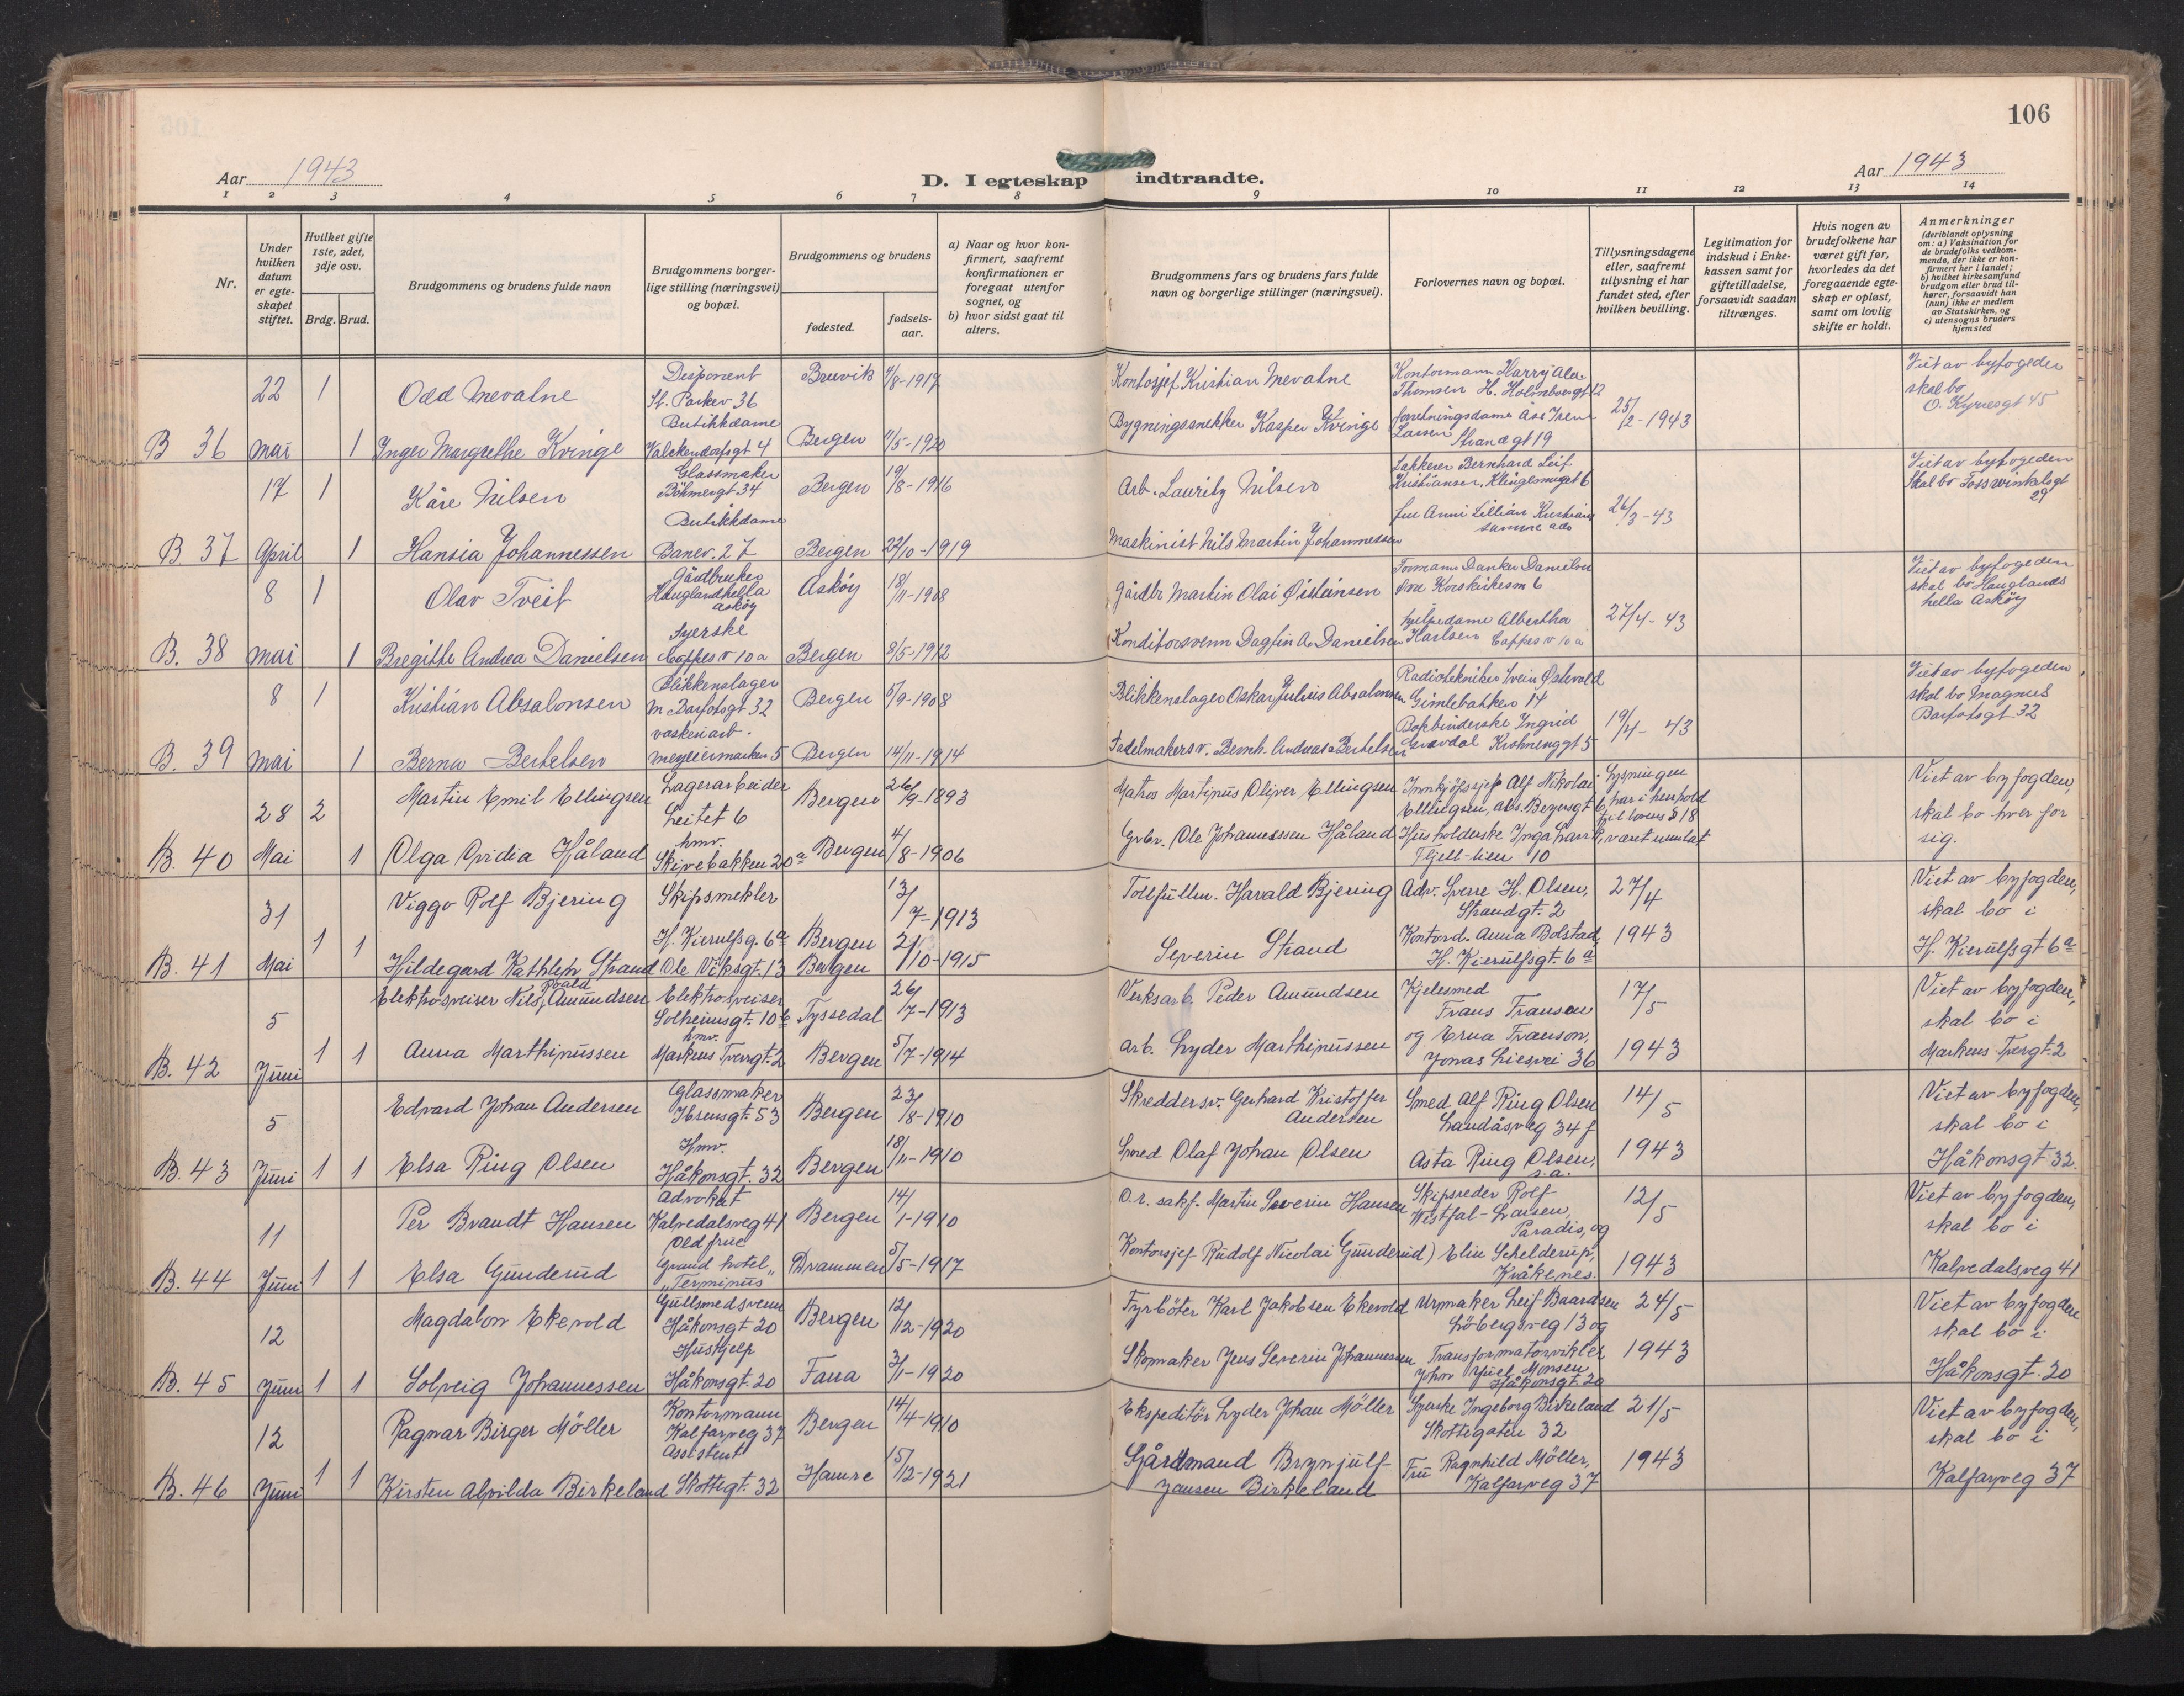 106
Aar 1943
D. I egteskap indtraadte.
Aar 1943
1 2 3 4 5 6 7 8 9 10 11 12 13 14
Nr.
Under hvilken datum er egte-skapet stiftet.
Hvilket gifte 1ste, 2det, 3dje osv.
Brdg. Brud.
Brudgommens og brudens fulde navn
Brudgommens borger-lige stilling (næringsvei) og bopæl.
Brudgommens og brudens
fødested.
fødsels-aar.
a) Naar og hvor kon-firmert, saafremt konfirmationen er foregaat utenfor sognet, og
b) hvor sidst gaat til alters.
Brudgommens fars og brudens fars fulde navn og borgerlige stillinger (næringsvei).
Forlovernes navn og bopæl.
Tillysningsdagene eller, saafremt tillysning ei har fundet sted, efter hvilken bevilling.
Legitimation for indskud i Enke-kassen samt for giftetilladelse, forsaavidt saadan tiltrænges.
Hvis nogen av brudefolkene har været gift før, hvorledes da det foregaaende egte-skap er opløst, samt om lovlig skifte er holdt.
Anmerkninger
(deriblandt oplysning om: a) Vaksination for de brudefolks vedkom-mende, der ikke er kon-firmert her i landet; b) hvilket kirkesamfund brudgom eller brud til-hører, forsaavidt han (hun) ikke er medlem av Statskirken, og c) utensogns bruders hjemsted
22 1 Odd Mevatne Disponent St. Parkev 36 Bruvik 4/8-1917 Kontosjef Kristian Mevatne Kontormann Harry Alex Thomsen H. Holmboegt 12 Viet av byfogden skal bo O. Kyrresgt 45
B 36 Mai 1 Inger Margrethe Kvinge Butikkdame Valckendorfsgt 4 Bergen 11/5-1920 Bygningssnekker Kasper Kvinge forretningsdame Åse Irene Lassen Strandgt 19 25/2-1943
17 1 Kåre Nilsen Glassmaker Böhmergt 34 Bergen 19/8-1916 Arb. Lauritz Nilsen Lakkerer Bernhard Leif Kristiansen, Klingesmuget 6 Viet av byfogden Skal bo Fosswinkelsgt 29
B. 37 April 1 Hansia Johannessen Butikkdame Banev. 27 Bergen 22/10-1919 Maskinist Nils Martin Johannessen fru Anni Lillian Kristians samme ads 26/3-43
8 1 Olav Tveit Gårdbruker Hauglandhella Askøy Askøy 18/11-1908 Gårdbr Martin Olai Øisteinsen Formann Danker Danielsen Øvre Korskirkesm 6 Viet av byfogden skal bo Hauglands hella Askøy
B. 38 Mai 1 Bregitte Andrea Danielsen Syerske Cappes v 10a Bergen 8/5-1912 Konditorsvenn Dagfin A. Danielsen hjelpedame Albertha Karlsen Cappes v 10 a 27/4-43
8 1 Kristian Absalonsen Blikkenslager M Barfotsgt 32 Bergen 5/9-1908 Blikkenslager Oskar Julius Absalonsen Radiotekniker Svein Østevold Gimlebakken 14 Viet av byfogden skal bo Magnus Barfotsgt 32
B. 39 Mai 1 Berna Bertelsen vaskeriarb. Meyeermarken 5 Bergen 14/11-1914 Sadelmakersv. Bernh. Andreas Bertelsen Bokbinderske Ingrid Gravdal Krohnenggt 5 19/4-43
28 2 Martin Emil Ellingsen Lagerarbeider Leitet 6 Bergen 26/9-1893 Matros Martinus Oliver Ellingsen Innkjöpssjef Alf Nikolai Ellingsen, abs. Beyersgt 6, Lysningen har i henhold til lovens § 18 Viet av byfogden, skal bo hver for sig.
B. 40 Mai 1 Olga Ovidia Håland hmv. Skivebakken 20a Bergen 4/8-1906 Grbr. Ole Johannessen Håland Husholderske Inga Fjell-lien 10 været unnlat
31 Viggo Rolf Bjering Skipsmekler H. Kierulfsg. 6a Bergen 13/7-1913 Tollfullm. Harald Bjering Adv. Sverre H. Olsen, Strandgt. 2 27/4 Viet av byfogden, skal bo i
B. 41 Mai 1 1 Hildegard Kathleen Strand Ole Viksgt. 13 Bergen 21/10-1915 Severin Strand Kontord. Anna Bolstad, H. Kierulfsgt. 6a 1943 H. Kierulfsgt 6a
5 Elektrosveiser Nils Roald Amundsen Elektrosveiser Solheimsgt. 10b Tyssedal 26/7-1913 Verksarb. Peder Amundsen Kjelesmed Frans Franson 17/5 Viet av byfogden, skal bo i
B. 42 Juni 1 1 Anna Marthinussen hmv. Markus Tvergt. 2 Bergen 5/7-1914 Arb. Lyder Marthinussen og Erna Franson, Jonas Liesvei 36 1943 Markus Tvergt. 2
5 Edvard Johan Andersen Glassmaker Ibsensgt. 53 Bergen 23/8-1910 Skreddersv. Gerhard Kristoffer Andersen Smed Alf Ring Olsen Landåsveg 34f 14/5 Viet av byfogden, skal bo i
B. 43 Juni 1 1 Elsa Ring Olsen Hmv. Håkonsgt. 32 Bergen 18/11-1910 Smed Olaf Johan Olsen Asta Ring Olsen, s.a. 1943 Håkonsgt 32.
11 Per Brandt Hansen Advokat Kalvedalsveg 41 Bergen 14/1-1910 O.r. sakf. Martin Severin Hansen Skipsreder Rolf Westfal-Larsen, Paradis, og 12/5 Viet av byfogden, skal bo i
B. 44 Juni 1 1 Elsa Gunderud Oldfrue Grand hotel „Terminus" Drammen 5/5-1917 Kontorsjef Rudolf Nicolai Gunderud) Elin Schelderup, Kråkenes. 1943 Kalvedalsveg 41
12 Magdalon Ekevold Gullsmedsvenn Håkonsgt 20 Bergen 12/12-1920 Fyrböter Karl Jakobsen Ekevold Urmaker Leif Baardsen Löbergsveg 13 og 24/5 Viet av byfogden skal bo i
B. 45 Juni 1 1 Solveig Johannessen Hushjelp Håkonsgt. 20 Fana 3/1-1920 Skomaker Jens Severin Johannessen Transformatorvikler John Juel Monsen Håkonsgt. 20 1943 Håkonsgt. 20
12 Ragnar Birger Möller Kontormann Kalfarveg 37 Bergen 14/4-1910 Ekspeditör Lyder Johan Möller Syerske Ingeborg Birkeland Skottegaten 32 21/5 Viet av byfogden, skal bo i
B. 46 Juni 1 1 Kirsten Alvilda Birkeland Assistent Skottegt. 32 Hamre 15/12-1921 Gårdmand Brynjulf Jansen Birkeland Fru Ragnhild Möller, Kalfarveg 37 1943 Kalfarveg 37